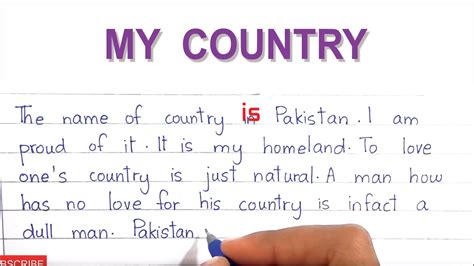 MY COUNTRY
The name of country is Pakistan. I am
proud of it. It is my homeland. To love
one's country is just natural. A man how
has no love for his country is infact a
dull man. Pakistan
BSCRIBE